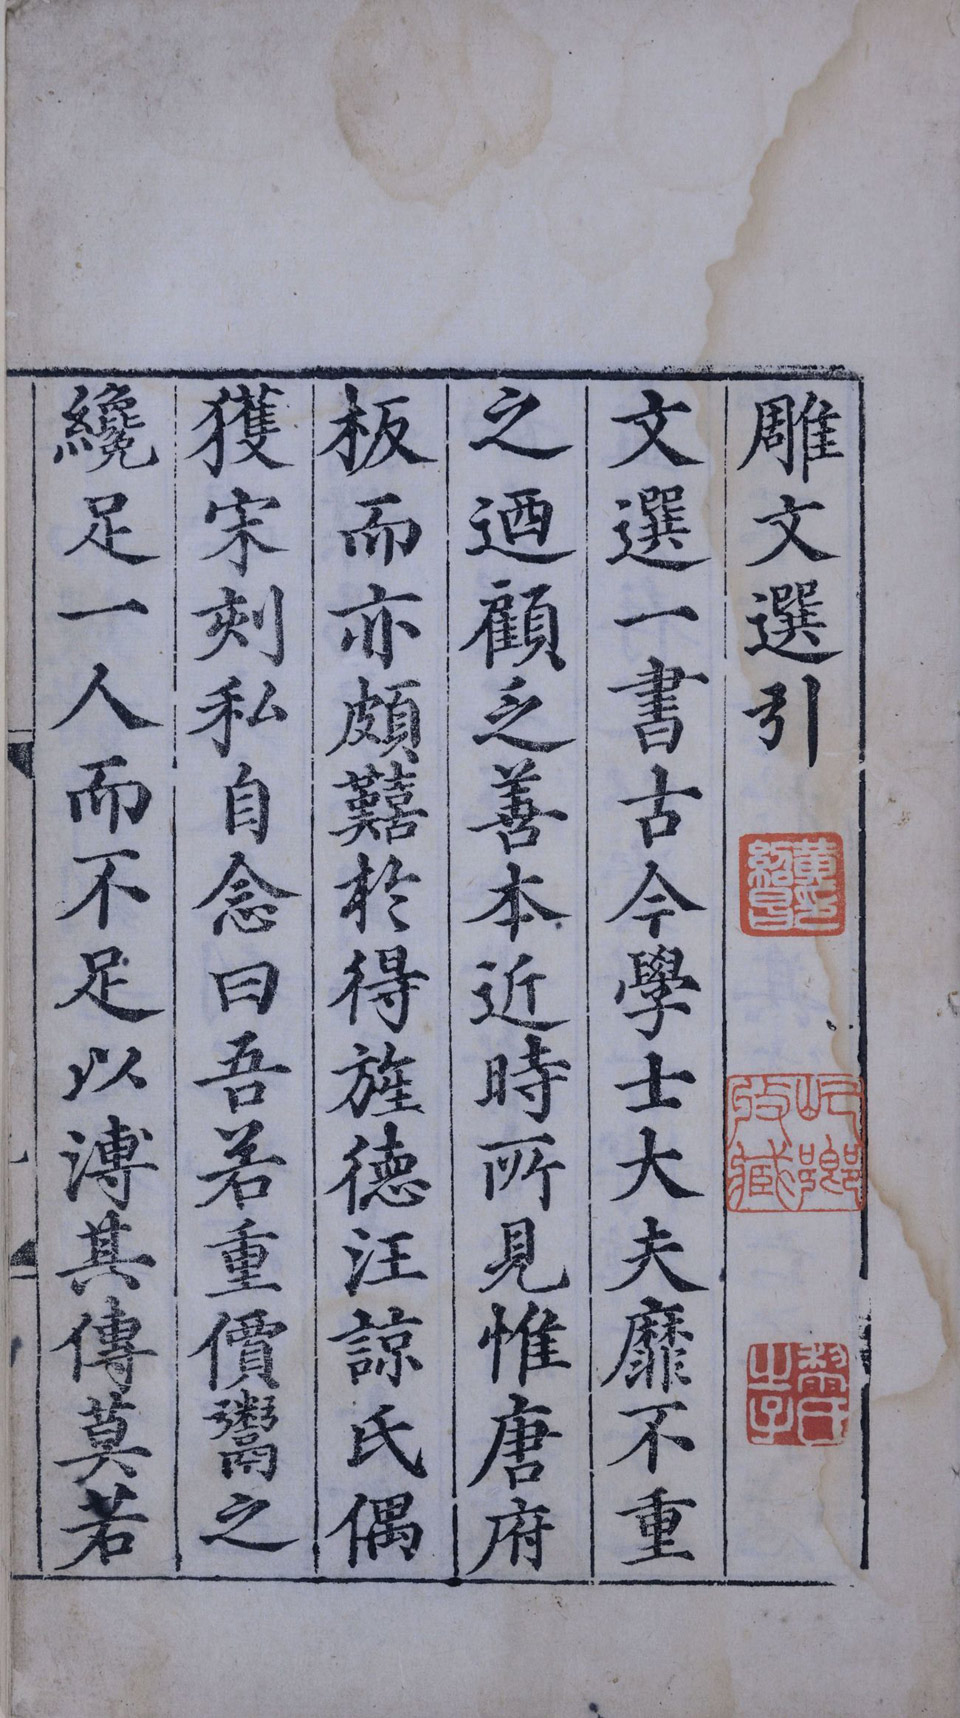 雕文選引
文選一書古今學士大夫靡不重
之迺顧乏善本近時所見惟唐府
板而亦頗囏於得旌德汪諒氏偶
獲宋刻私自念曰吾若重價鬻之
纔足一人而不足以溥其傳莫若
黃紹昌印
岷鄉收藏